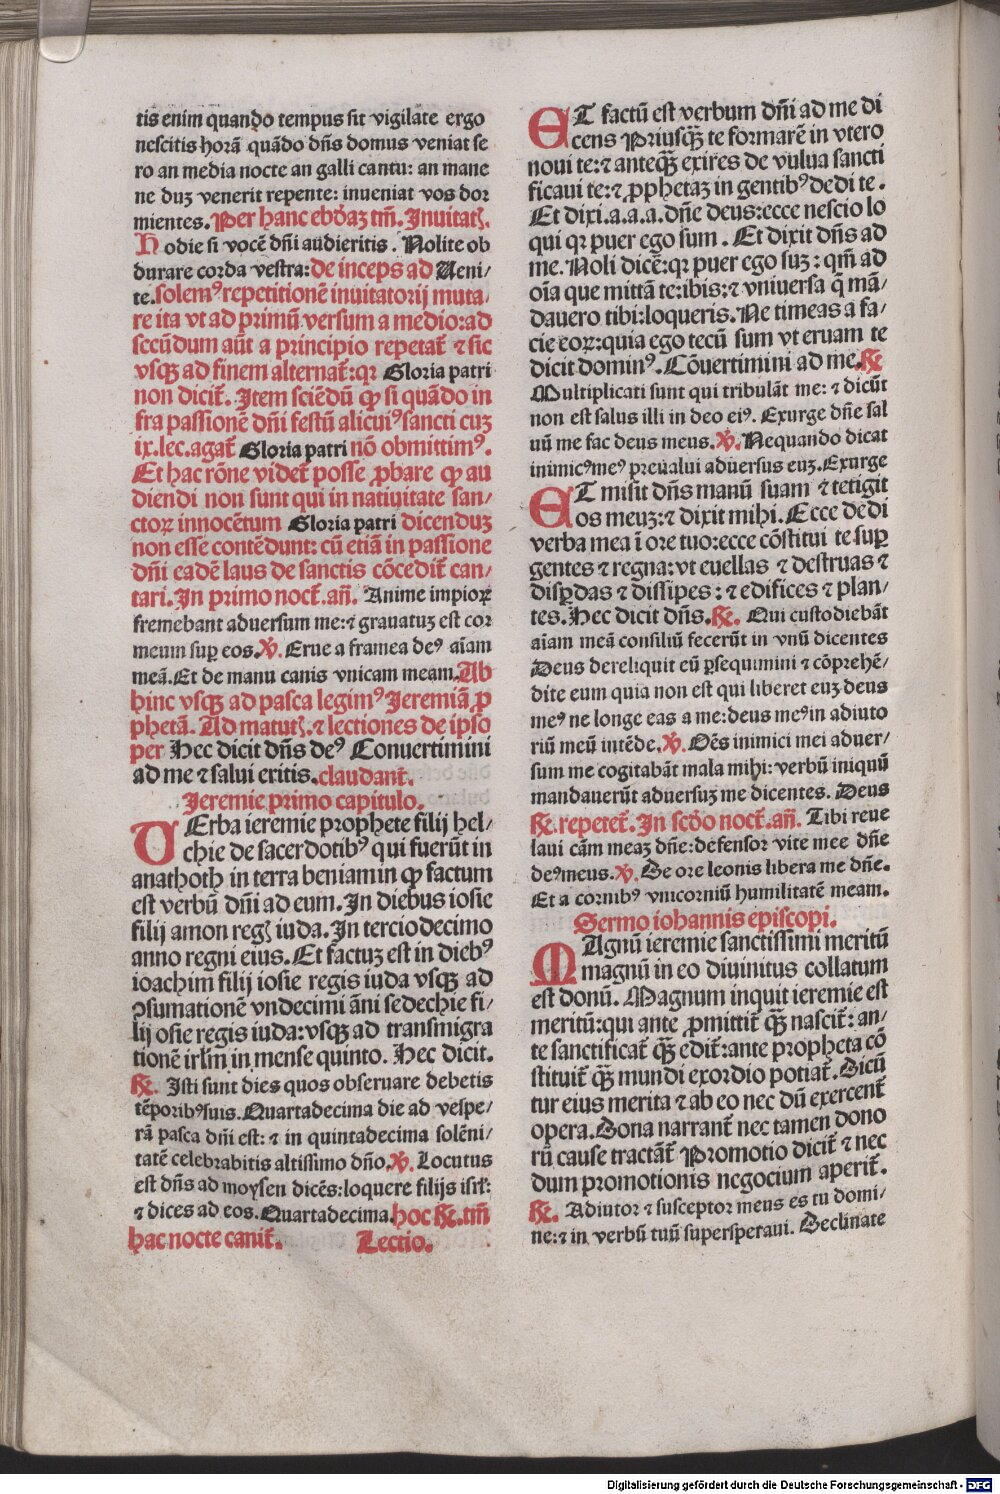 tis enim quando tempus sit vigilate ergo
nescitis horā quādo dñs domus veniat se
ro an media nocte an galli cantu: an mane
ne duꝫ venerit repente: inueniat vos dor
mientes. Per hanc ebdaꝫ tm̄. Inuitatꝭ.
Hodie si vocē dñi audieritis. Nolite ob
durare corda vestra: de inceps ad Ueni/
te. solemꝰ repetitionē inuitatorij muta/
re ita vt ad primū versum a medio: ad
secūdum aūt a principio repetat̄ ⁊ sic
vsqꝫ ad finem alternat̄: qꝛ Gloria patri
non dicit̄. Item sciēdū ꝙ si quādo in
fra passionē dñi festū alicuiꝰ sancti cuꝫ
ix. lec. agat̄ Gloria patri nō obmittimꝰ.
Et hac rōne videt̄ posse ꝓbare ꝙ au
diendi non sunt qui in natiuitate san/
ctoꝝ innocētum Gloria patri dicenduꝫ
non esse contēdunt: cū etiā in passione
dñi eadē laus de sanctis cōcedit̄ can/
tari. In primo noct̄. añ. Anime impioꝝ
fremebant aduersum me: ⁊ grauatuꝫ est cor
meum suꝑ eos. ℣. Erue a framea deꝰ aīam
meā. Et de manu canis vnicam meam. Ab
hinc vsqꝫ ad pasca legimꝰ Jeremiā ꝓ
phetā. Ad matutꝭ. ⁊ lectiones de ipso
per Hec dicit dñs deꝰ Conuertimini
ad me ⁊ salui eritis. claudant̄.
Jeremie primo capitulo.
UErba ieremie prophete filij hel/
chie de sacerdotibꝰ qui fuerūt in
anathoth in terra beniamin ꝙ factum
est verbū dñi ad eum. In diebus iosie
filij amon regꝭ iuda. In terciodecimo
anno regni eius. Et factuꝫ est in diebꝰ
ioachim filij iosie regis iuda vsqꝫ ad
ꝯsumationē vndecimi āni sedechie fi/
lij osie regis iuda: vsqꝫ ad transmigra
tionē irl̄m in mense quinto. Hec dicit.
℟. Isti sunt dies quos obseruare debetis
tēporibꝰ suis. Quartadecima die ad vespe/
rā pasca dñi est: ⁊ in quintadecima solēni/
tatē celebrabitis altissimo dño. ℣. Locutus
est dñs ad moysen dicēs: loquere filijs isrł:
⁊ dices ad eos. Quartadecima. hoc ℟. tm̄
hac nocte canit̄. Lectio.
ET factū est verbum dñi ad me di
cens Priusqꝫ̄ te formarē in vtero
noui te: ⁊ anteqꝫ̄ exires de vulua sancti
ficaui te: ⁊ ꝓphetaꝫ in gentibꝰ dedi te.
Et dixi. a. a. a. dñe deus: ecce nescio lo
qui qꝛ puer ego sum. Et dixit dñs ad
me. Noli dicē: qꝛ puer ego suꝫ: qm̄ ad
oīa que mittā te: ibis: ⁊ vniuersa q̄ mā/
dauero tibi: loqueris. Ne timeas a fa/
cie eoꝝ: quia ego tecū sum vt eruam te
dicit dominꝰ. Cōuertimini ad me. ℟
Multiplicati sunt qui tribulāt me: ⁊ dicūt
non est salus illi in deo eiꝰ. Exurge dñe sal
uū me fac deus meus. ℣. Nequando dicat
inimicꝰ meꝰ preualui aduersus euꝫ. Exurge
ET misit dñs manū suam ⁊ tetigit
os meuꝫ: ⁊ dixit mihi. Ecce dedi
verba mea ī ore tuo: ecce cōstitui te suꝑ
gentes ⁊ regna: vt euellas ⁊ destruas ⁊
disꝑdas ⁊ dissipes: ⁊ edifices ⁊ plan/
tes. Hec dicit dñs. ℟. Qui custodiebāt
aīam meā consiliū fecerūt in vnū dicentes
Deus dereliquit eū ꝑsequimini ⁊ cōprehē/
dite eum quia non est qui liberet euꝫ deus
meꝰ ne longe eas a me: deus meꝰ in adiuto
riū meū intēde. ℣. Oēs inimici mei aduer/
sum me cogitabāt mala mihi: verbū iniquū
mandauerūt aduersuꝫ me dicentes. Deus
℟. repetet̄. In scdo noct̄. añ. Tibi reue
laui cām meaꝫ dñe: defensor vite mee dñe
deꝰ meus. ℣. De ore leonis libera me dñe.
Et a cornibꝰ vnicorniū humilitatē meam.
Sermo iohannis episcopi.
MAgnū ieremie sanctissimi meritū
magnū in eo diuinitus collatum
est donū. Magnum inquit ieremie est
meritū: qui ante ꝓmittit̄ qꝫ̄ nascit̄: an/
te sanctificat̄ qꝫ̄ edit̄: ante propheta cō
stituit̄ qꝫ̄ mundi exordio potiat̄. Sicū
tur eius merita ⁊ ab eo nec dū exercent̄
opera. Bona narrant̄ nec tamen dono
rū cause tractāt̄ Promotio dicit̄ ⁊ nec
dum promotionis negocium aperit̄.
℟. Adiutor ⁊ susceptor meus es tu domi/
ne: ⁊ in verbū tuū supersperaui. Declinate
Digitalisierung gefördert durch die Deutsche Forschungsgemeinschaft - DFG